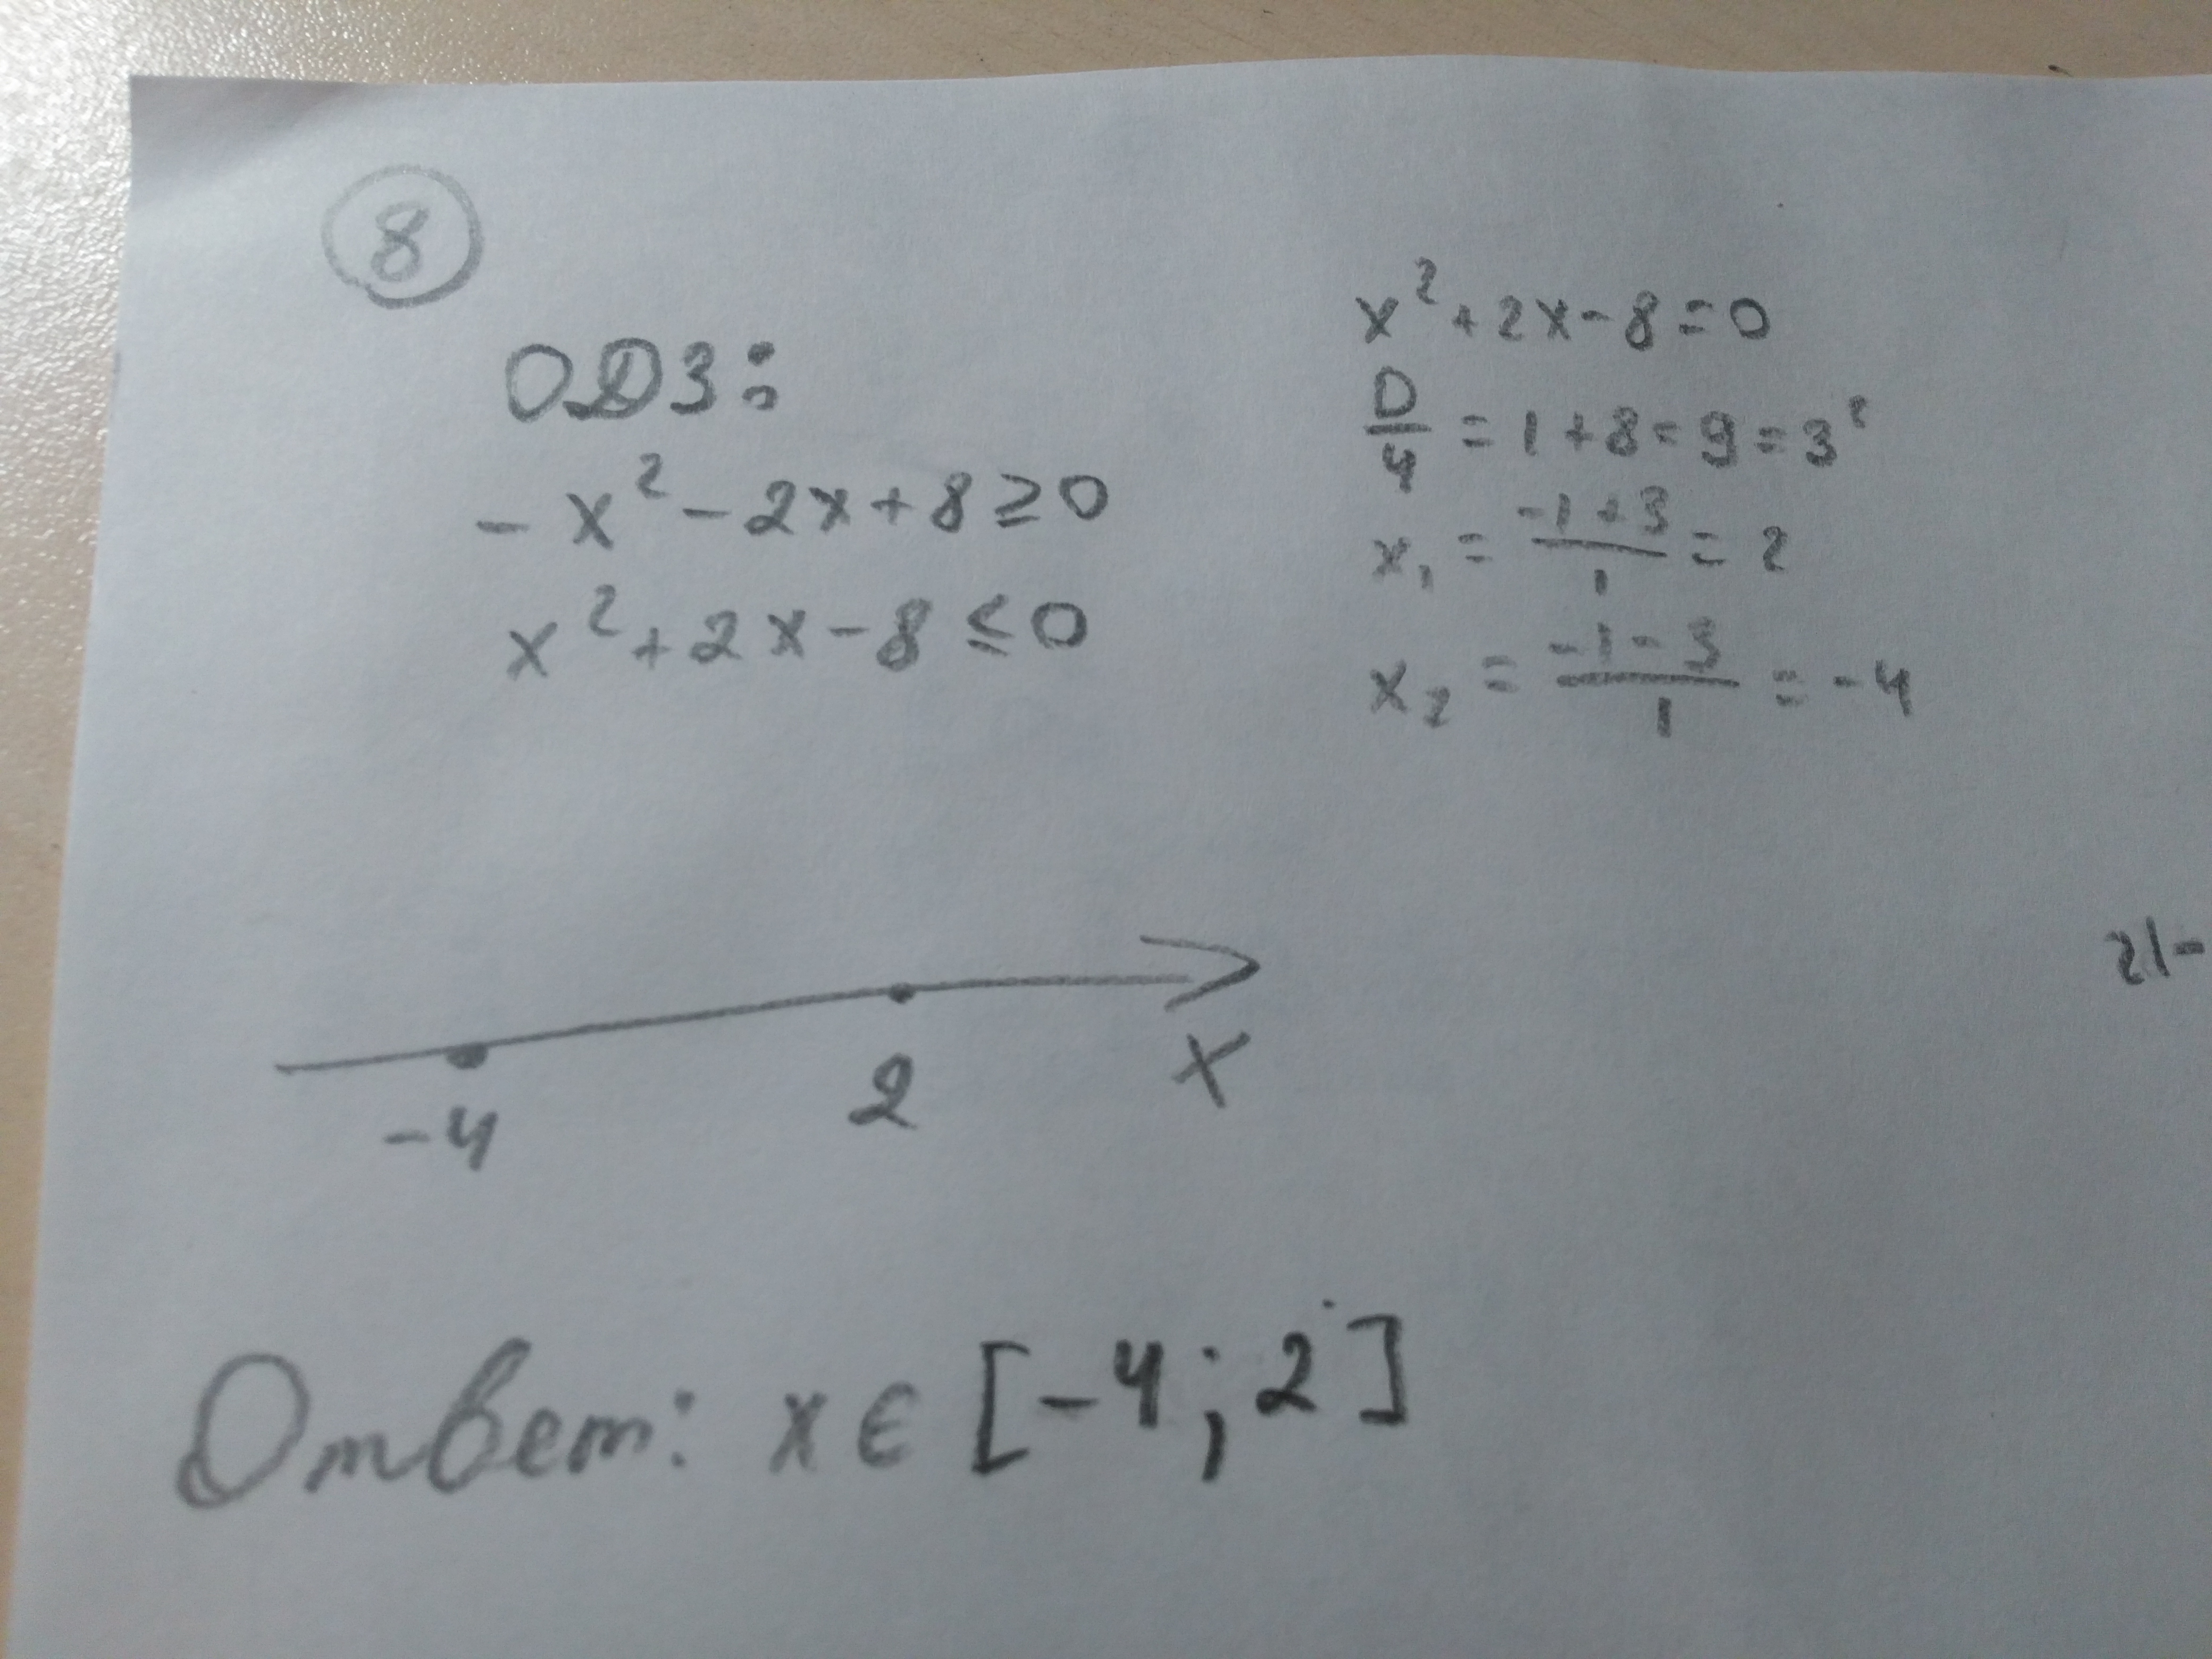 8
ОДЗ:
-x²-2x+8≥0
x²+2x-8≤0
x²+2x-8=0
D/4 = 1+8=9=3²
x₁ = (-1+3)/1 = 2
x₂ = (-1-3)/1 = -4
-4 2 x
Ответ: x∈[-4;2]